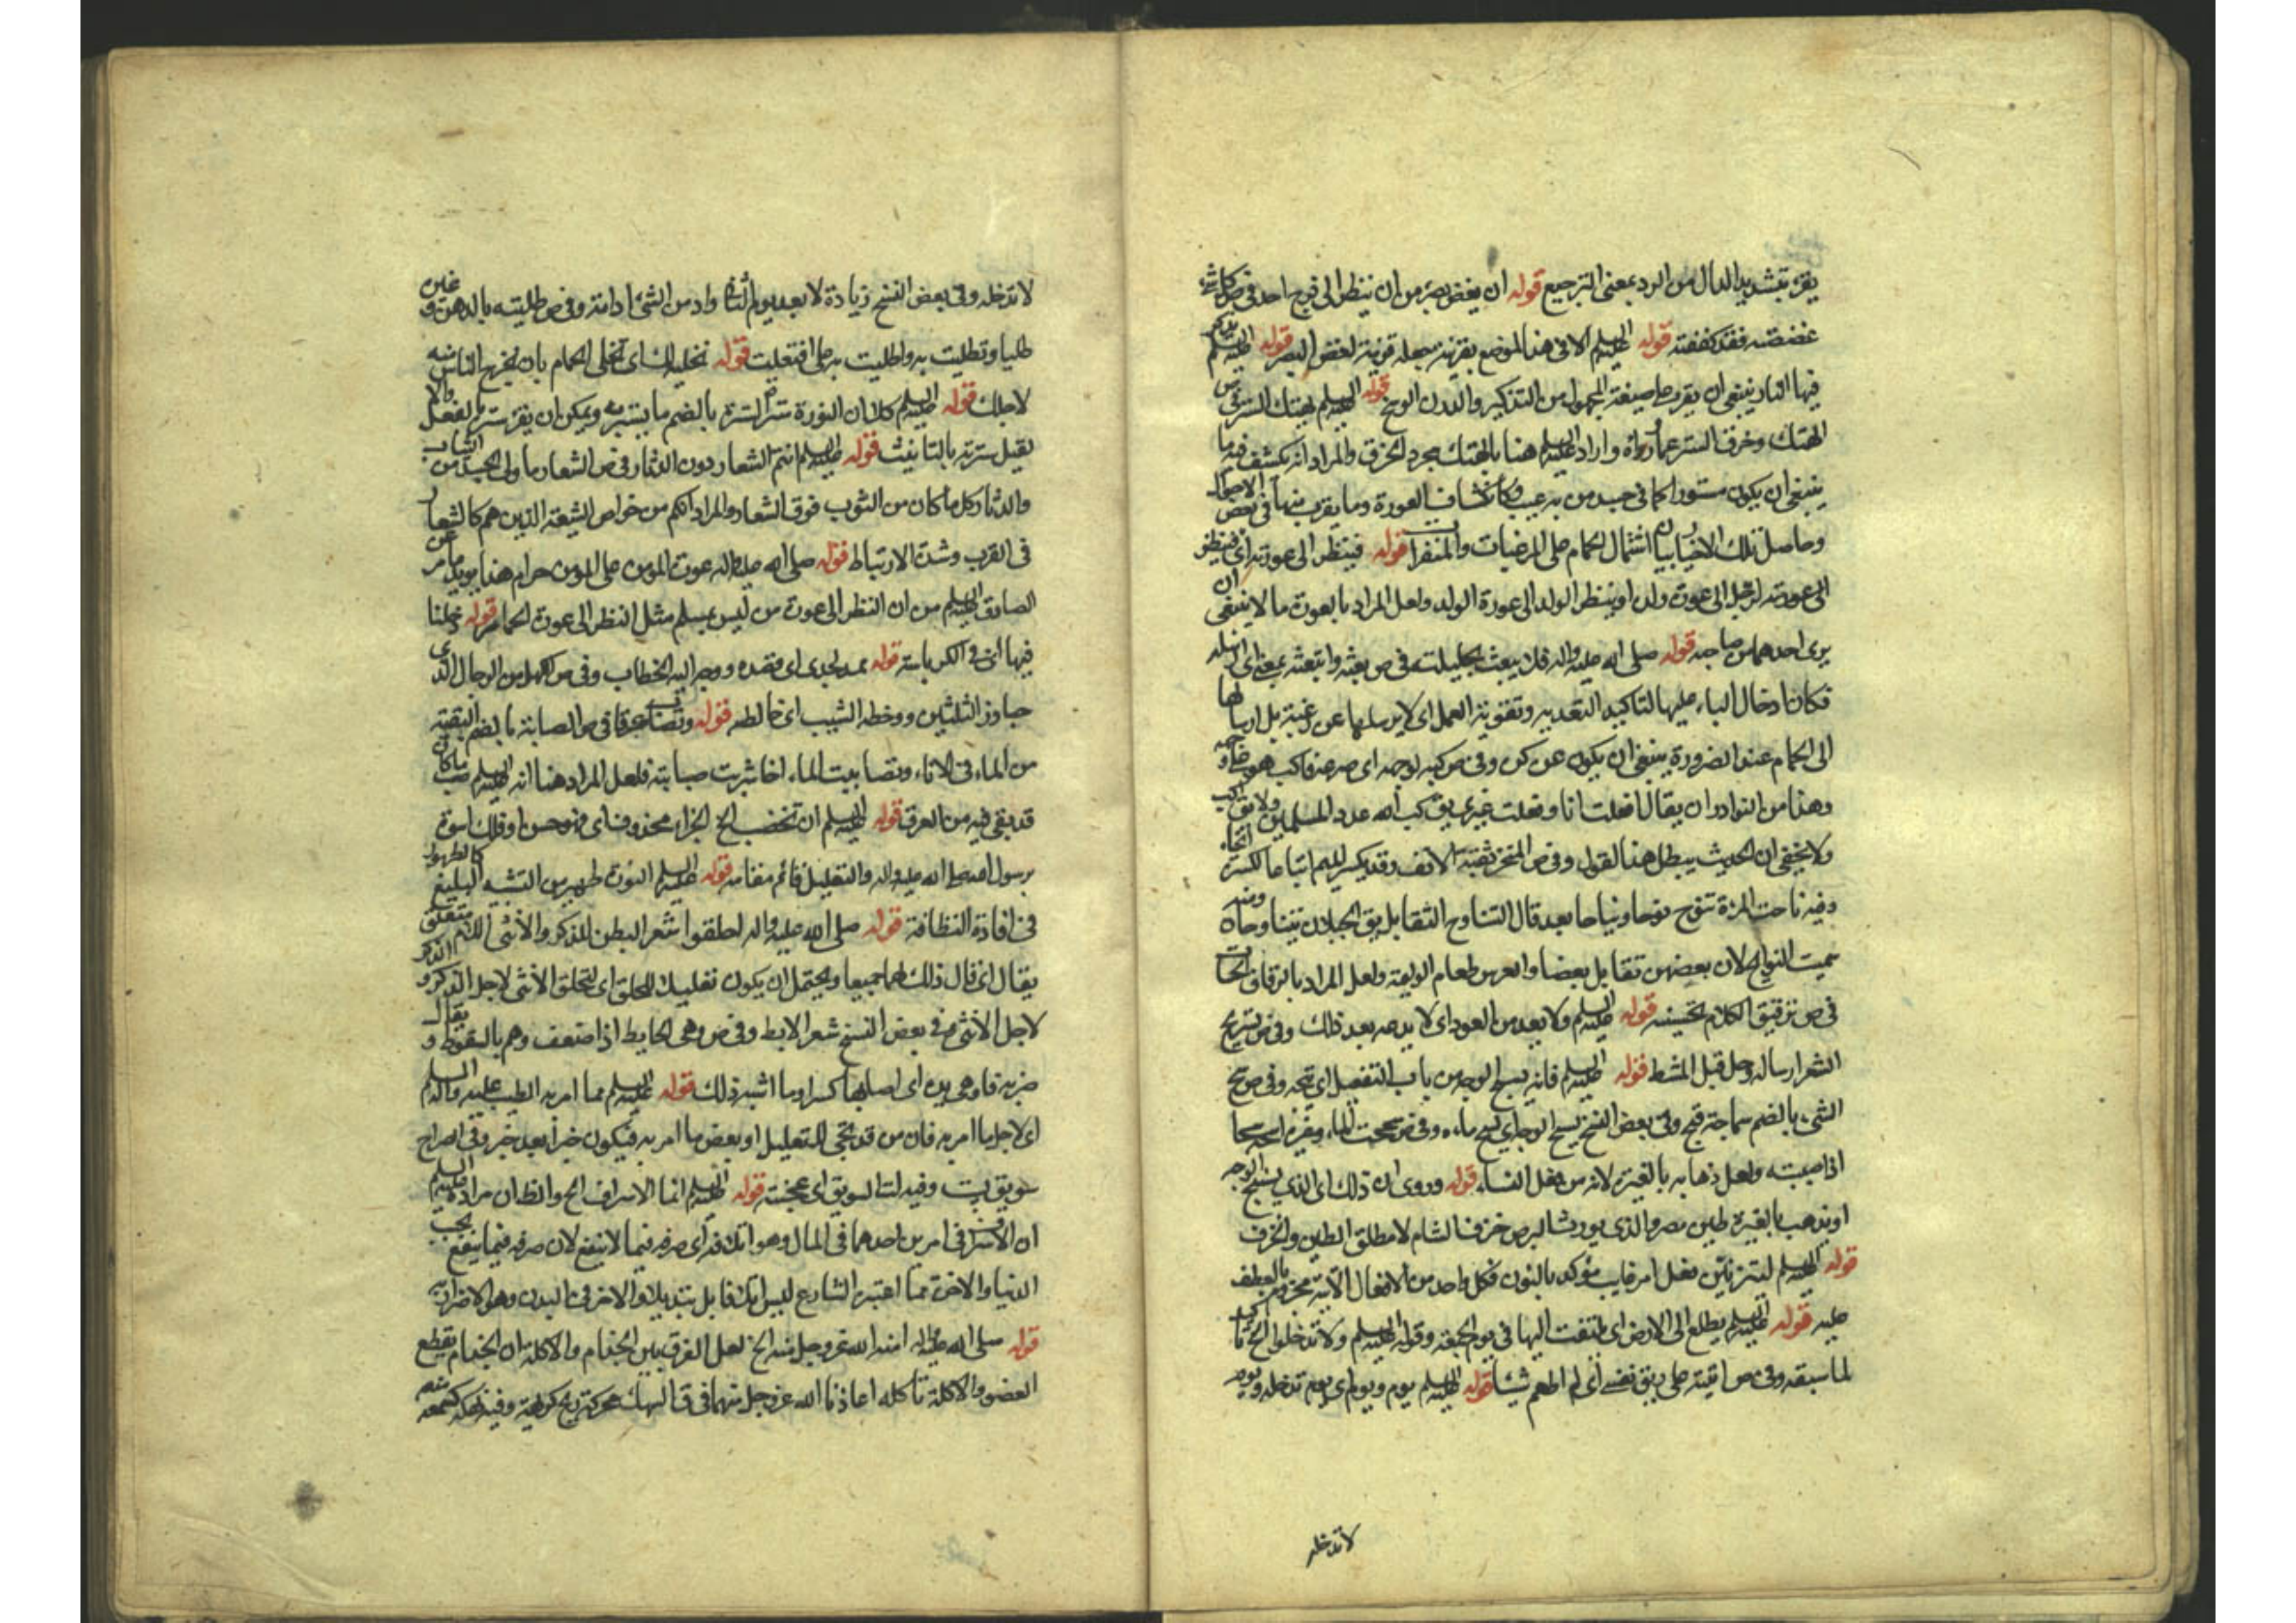 يقرء بتشديد الدال من الرد بمعنى الترجيع قوله ان يغض بصره من ان ينظر الى فرج احد في ص كل شئ
غضضته فقد كففته قوله عليه السلم الا في هذا الموضع بقرينة جعله قرينة لغض البصر قوله عليه السلم يذكر
فيها النار ينبغي ان يقرء على صيغة المجهول من التذكير والدرن الوسخ قوله عليه السلم يهتك الستر في ص
الهتك وخرق الستر عما وراءه واراد عليه السلم هنا بالهتك مجرد الخرق والمراد انه يكشف فيه ما
ينبغي ان يكون مستورا كما في جسد من به عيب وكانكشاف العورة وما يقرب منها في بعض الاحيان
وحاصل تلك الاخبار بيان اشتمال الحمام على المرغبات والمنفرات قوله فينظر الى عورته اي فينظر
الى عورته الرجل الى عورة ولده او ينظر الولد الى عورة الولد ولعل المراد بالعورة ما لا ينبغي ان
يرى احدهما من صاحبه قوله صلى الله عليه واله فلا يبعث بحليلته في ص بعثه وابتعثه بمعنى اي ارسله
فكان ادخال الباء عليها لتاكيد التعدية وتقوية العمل اي لا يرسلها عن رغبة بل ارسالها
الى الحمام عند الضرورة ينبغي ان يكون عن كره وفي ص كبه لوجهه اي صرعه فاكب هو على وجهه
وهذا من النوادر ان يقال افعلت انا وفعلت غيري يق كب الله عدو المسلمين ولا يق اكب
ولا يخفى ان الحديث يبطل هذا القول وفي ص المنخر ثقبة الانف وقد يكسر الميم اتباعا لكسرة الخاء
وفيه ناحت المرءة تنوح نوحا ونياحا بعد قال التناوح التقابل يق الجبلان يتناوحان ومنه
سميت النوائح لان بعضهن تقابل بعضا والعرس طعام الوليمة ولعل المراد بالرقاق
في ص ترقيق الكلام تحسينه قوله عليه السلم ولا يعد من العود اي لا يدعه بعد ذلك وفي ص تسريح
الشعر ارساله وحله قبل المشط قوله عليه السلم فانه يسمج الوجه من باب التفعيل اي يقبحه وفي ص سمج
الشئ بالضم سماجة قبح وفي بعض النسخ يسح الوجه اي يسح ماءه وفي ص سححت الماء وغيره اسحه سحا
اذا صببته ولعل ذهابه بالغيرة لانه من فعل النساء قوله وروى ان ذلك اي الذي يسمج الوجه
او يذهب بالغيرة طين مصر والذي يورث البرص خزف الشام لا مطلق الطين والخزف
قوله عليه السلم ليتزينن فعل امر غايب مؤكد بالنون فكل واحد من الافعال الآتية مجزوم بالعطف
عليه قوله عليه السلم يطلع الى الارض اي يلتفت اليها في يوم الجمعة وقوله عليه السلم ولا تدخلوا الخ تاكيد
لما سبقه وفي ص اتيته على ريق نفسي اي لم اطعم شيئا قوله عليه السلم يوم ويوم لا اي يوم تدخله ويوم
لا تدخله
لا تدخله وفي بعض النسخ زيادة لا بعد يوم الثاني وادمن الشئ ادامه وفي ص طليته بالدهن وغيره
طليا وتطليت به واطليت به على افتعلت قوله نخليه لك اي نخلي الحمام بان نخرج الناس منه
لاجلك قوله عليه السلم كلا ان النورة سترة السترة بالضم ما يستتر به ويمكن ان يقرء ستره بالفعل والا
لقيل سترته بالتانيث قوله عليه السلم انتم الشعار دون الدثار في ص الشعار ما ولي الجسد من الثياب
والدثار كل ما كان من الثوب فوق الشعار والمراد انكم من خواص الشيعة الذين هم كالشعار
في القرب وشدة الارتباط قوله صلى الله عليه واله عورة المؤمن على المؤمن حرام هذا يؤيد ما مر عن
الصادق عليه السلم من ان النظر الى عورة من ليس بمسلم مثل النظر الى عورة الحمار قوله دخلنا
قوله عمد لجدي اي قصده ووجه اليه الخطاب وفي ص الكهل من الرجال الذي
جاوز الثلثين ووخطه الشيب اي خالطه قوله في ص الصبابة بالضم البقية
من الماء في الاناء وتصابيت الماء اذا شربت صبابته فلعل المراد هنا انه عليه السلم صب ما كان
قد بقي فيه من العرق قوله عليه السلم ان تخضب الخ الجزاء محذوف اي فهو حسن او فلك اسوة
برسول الله صلى الله عليه واله والتعليل قائم مقامه قوله عليه السلم النورة طهور من التشبيه البليغ كالطهور
في افادة النظافة قوله صلى الله عليه واله احلقوا شعر البطن للذكر والانثى اللام متعلق
يقال اي قال ذلك لهما جميعا ويحتمل ان يكون تعليلا للحلق اي لتحلق الانثى لاجل الذكر والذكر
لاجل الانثى وفي بعض النسخ شعر الابط وفي ص وهى الحايط اذا ضعف وهم بالسقوط ويقال
ضربه فاوهى يده اي اصابها كسر او ما اشبه ذلك قوله عليه السلم مما امر به الطيب عليه واله السلم
اي لاجل ما امر به فان من قد تجئ للتعليل او بعض ما امر به فيكون خبرا بعد خبر وفي
سويق لت وفيه لتّ السويق اي عجنته قوله عليه السلم انما الاسراف الخ والظ ان مراده عليه السلم
ان الاسراف في امرين احدهما في المال وهو اتلافه اي صرفه فيما لا ينفع لان صرفه فيما ينفع بحسب
الدنيا والاخرة مما اعتبره الشارع ليس اتلافا بل تبديلا والاخر في البدن وهو الاضرار به
قوله صلى الله عليه واله امنه الله عز وجل منه الخ لعل الفرق بين الجذام والاكلة ان الجذام يقطع
العضو والاكلة تاكله اعاذنا الله عز وجل منهما في ق السهك محركة ريح كريهة